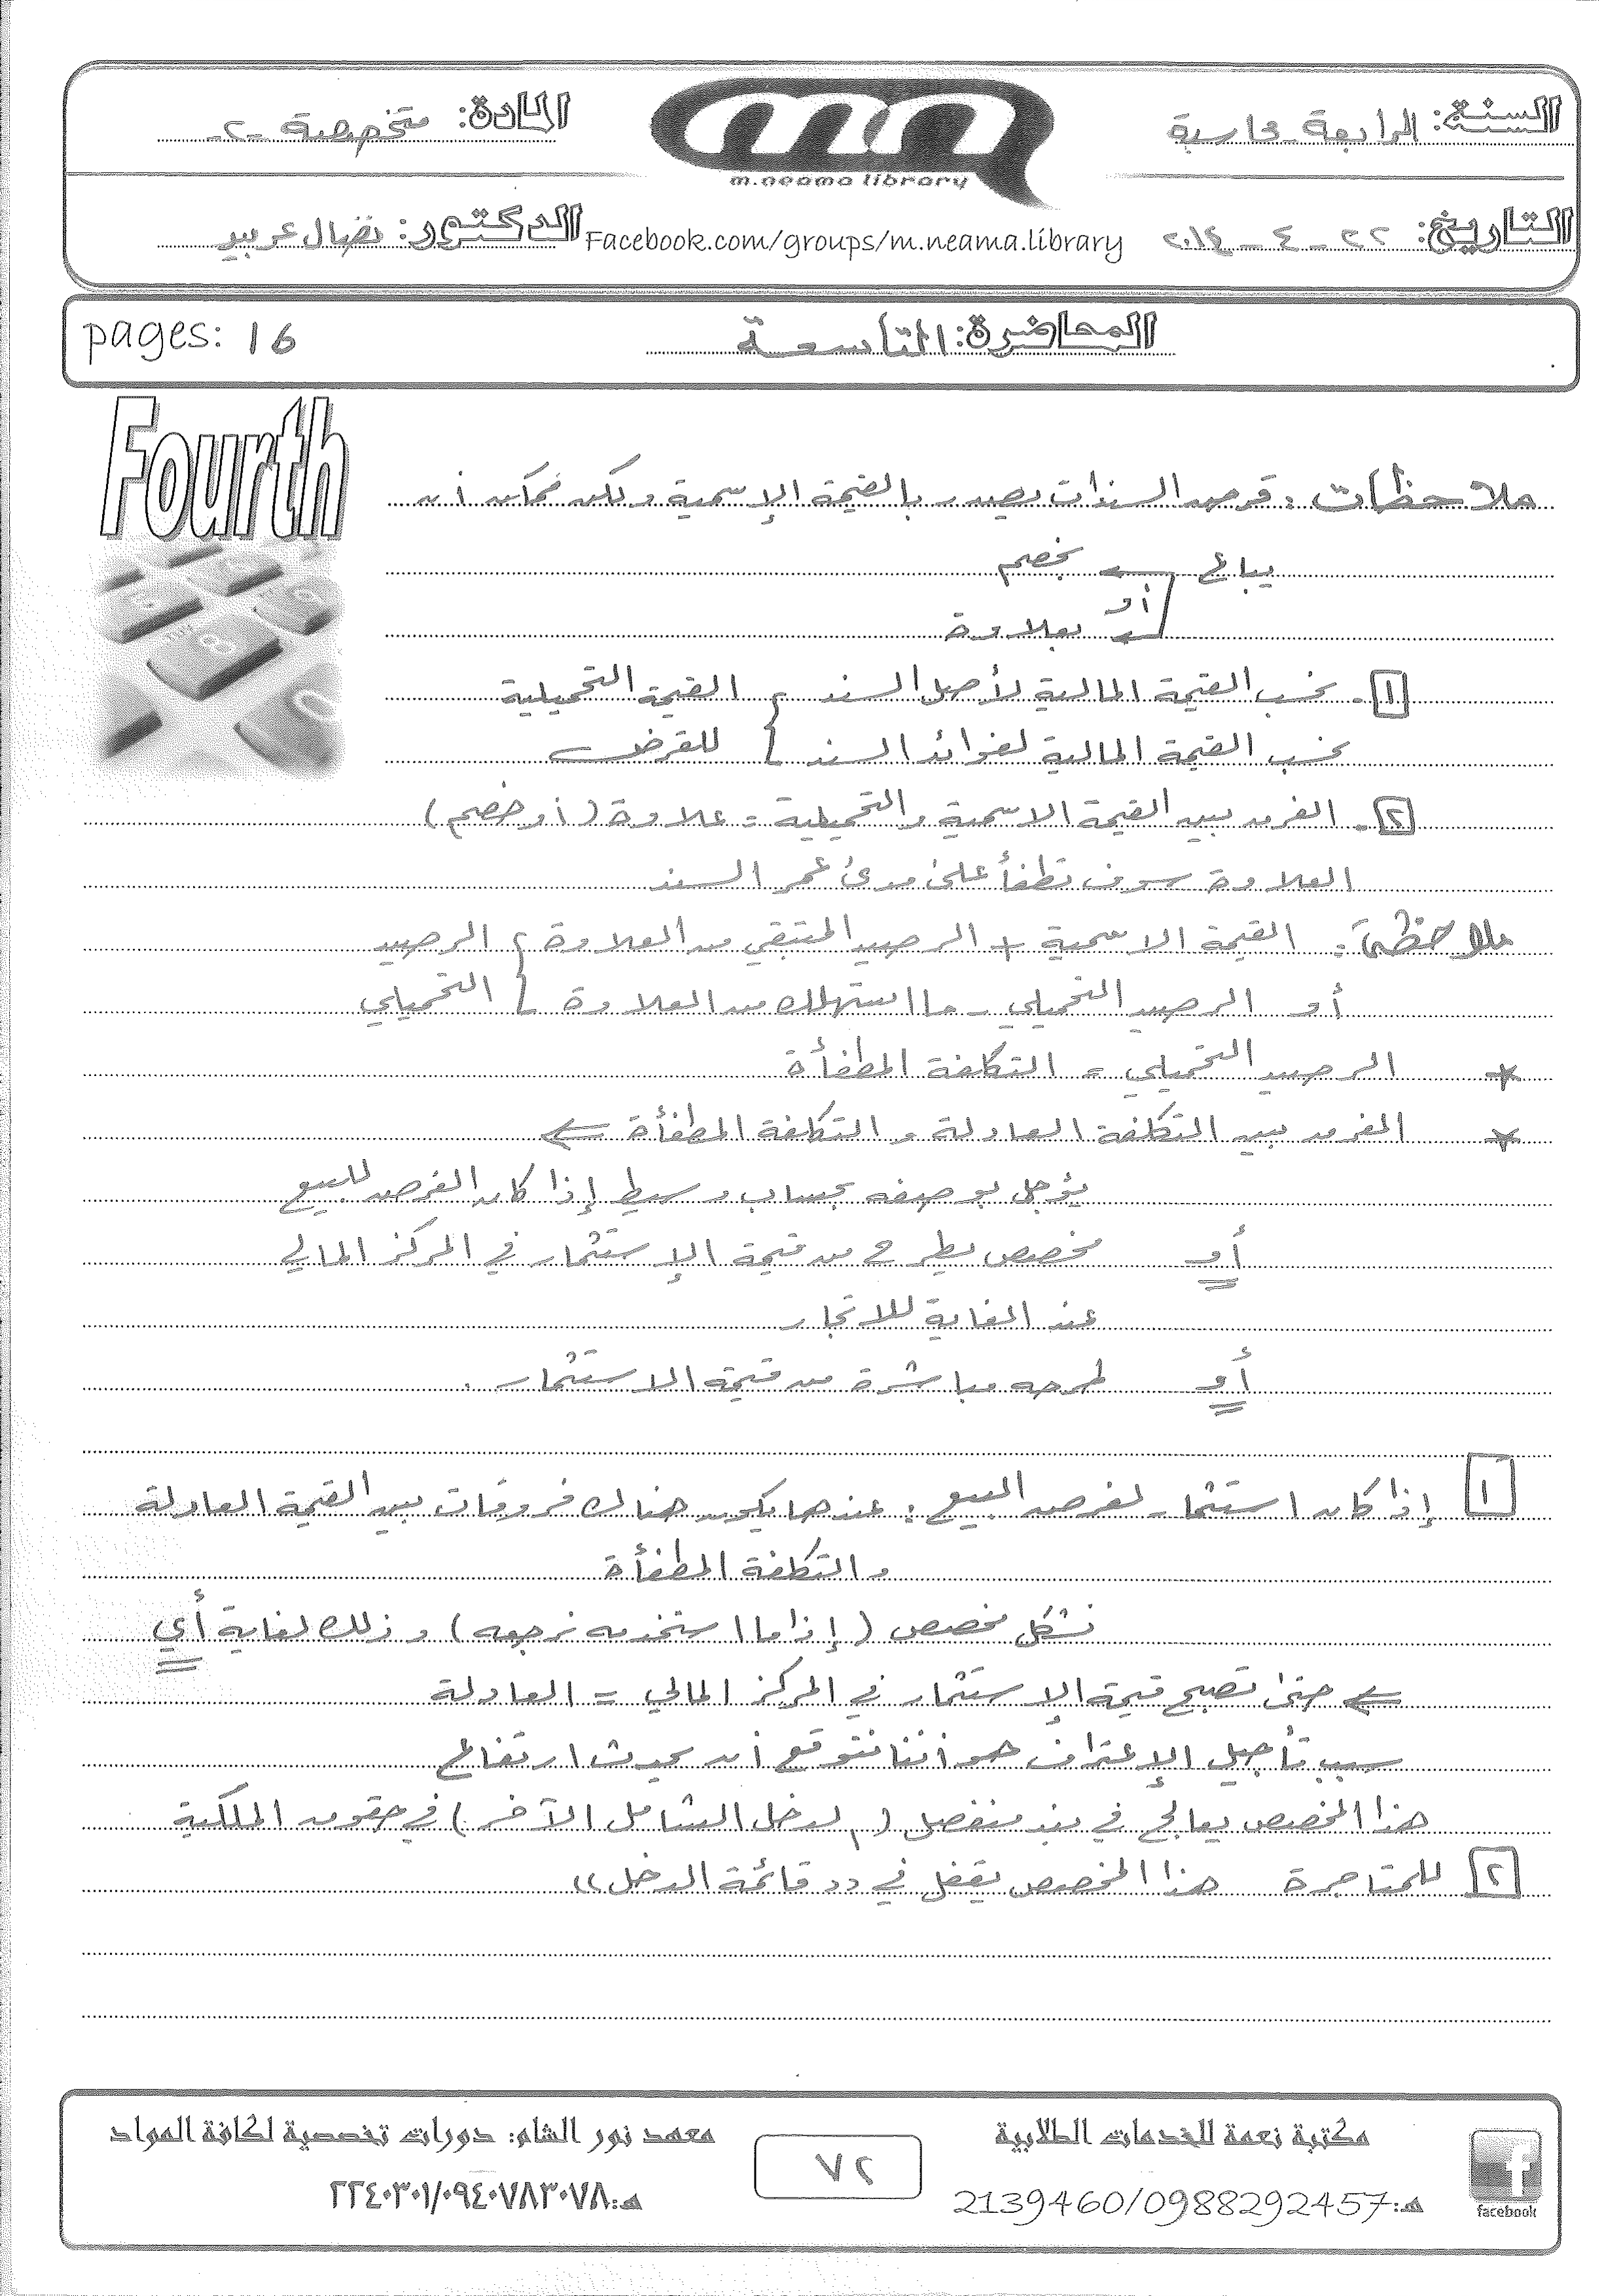 السنة: الرابعة محاسبة
المادة: متخصصة -٢-
m.neama library
التاريخ: ٢٢ - ٤ - ٢٠١٤
Facebook.com/groups/m.neama.library
الدكتور: نضال عربيد
المحاضرة: التاسعة
pages: 16
Fourth
ملاحظات: قرض السندات يصدر بالقيمة الإسمية ولكن ممكن أن
يباع ← بخصم
أو
← بعلاوة
١. نحسب القيمة المالية لأصل السند } القيمة التحميلية
نحسب القيمة المالية لفوائد السند } للقرض
٢. الفرق بين القيمة الاسمية والتحميلية = علاوة (أو خصم)
العلاوة سوف تطفأ على مدى عمر السند
ملاحظة: القيمة الاسمية + الرصيد المتبقي من العلاوة } الرصيد
أو الرصيد التحميلي - ما استهلك من العلاوة } التحميلي
* الرصيد التحميلي = التكلفة المطفأة
* الفرق بين التكلفة العادلة والتكلفة المطفأة ⇐
يؤجل بوصفه بحساب وسيط إذا كان الغرض للبيع
أو مخصص يطرح من قيمة الإستثمار في المركز المالي
عند الغاية للاتجار
أو طرحه مباشرة من قيمة الاستثمار.
١ إذا كان استثمار لغرض البيع: عندما يكون هناك فروقات بين القيمة العادلة
والتكلفة المطفأة
نشكل مخصص (إذا ما استخدمه نرجعه) وذلك لغاية أي
⇐ حتى تصبح قيمة الإستثمار في المركز المالي = العادلة
سبب تأجيل الإعتراف هو أننا نتوقع أن يحدث ارتفاع
هذا المخصص يعالج في بند منفصل (الدخل الشامل الآخر) في حقوق الملكية
٢ للمتاجرة هذا المخصص يقفل في "قائمة الدخل"
مكتبة نعمة للخدمات الطلابية
معهد نور الشام: دورات تخصصية لكافة المواد
٧٢
هـ: 2139460/0988292457
هـ: ٢٢٤٠٣٠١/٠٩٤٠٧٨٣٠٧٨
facebook